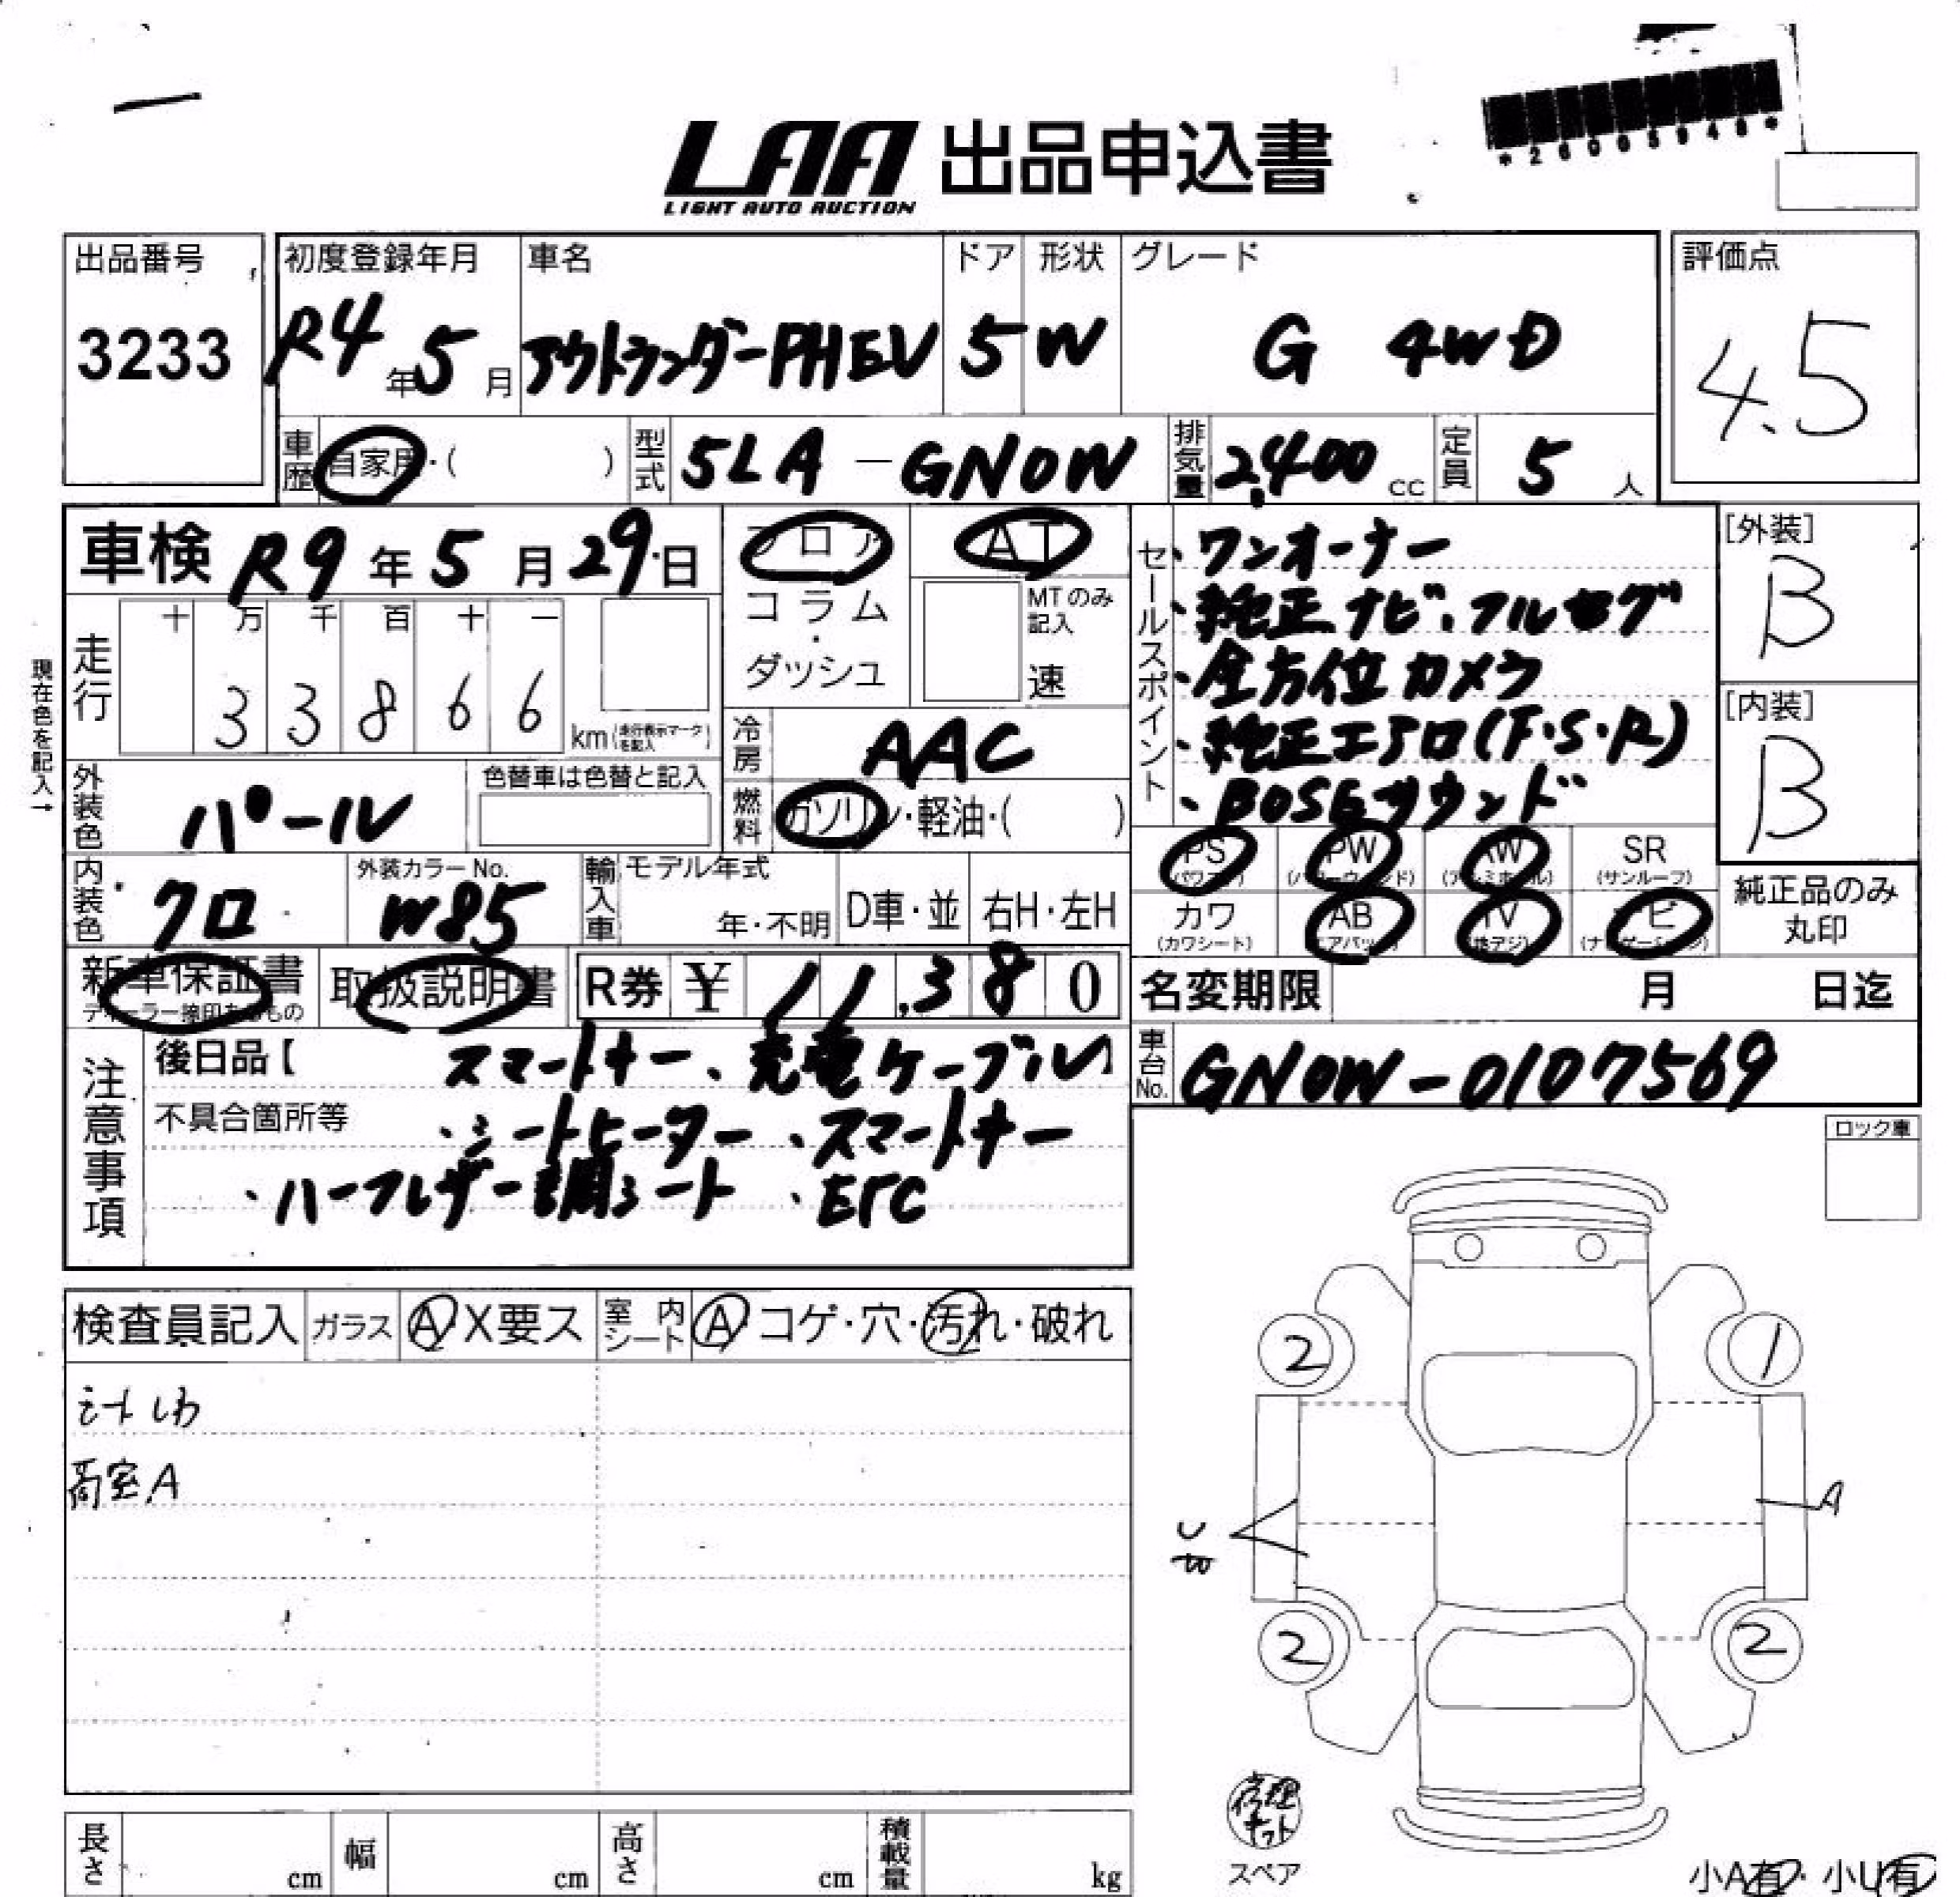 LAA 出品申込書
LIGHT AUTO AUCTION
*20005948*
出品番号
3233
初度登録年月
R4年5月
車名
アウトランダーPHEV
ドア
5
形状
W
グレード
G 4WD
評価点
4.5
車歴 自家用・( )
型式 5LA-GN0W
排気量 2,400 cc
定員 5 人
車検 R9年5月29日
フロア
コラム
・
ダッシュ
AT
MTのみ
記入
速
走行
十 万 千 百 十 一
3 3 8 6 6
km(走行表示マークを記入)
現在色を記入→
冷房 AAC
外装色 パール
色替車は色替と記入
燃料 ガソリン・軽油・( )
セールスポイント
・ワンオーナー
・純正ナビ、フルセグ
・全方位カメラ
・純正エアロ(F・S・R)
・BOSEサウンド
[外装]
B
[内装]
B
PS (パワステ)
PW (パワーウィンド)
AW (アルミホイル)
SR (サンルーフ)
カワ (カワシート)
AB (エアバック)
TV (地デジ)
ナビ (ナビゲーション)
純正品のみ
丸印
内装色 クロ
外装カラーNo.
W85
輸入車
モデル年式
年・不明
D車・並
右H・左H
新車保証書
ディーラー捺印あるもの
取扱説明書
R券 ¥ 11,380
名変期限 月 日迄
車台No. GN0W-0107569
注意事項
後日品【 スマートキー、充電ケーブル
不具合箇所等 ・シートヒーター ・スマートキー
・ハーフレザー調シート ・ETC
ロック車
検査員記入
ガラス A X要ス
室内シート A コゲ・穴・汚れ・破れ
シートしわ
荷室A
2
1
A
U
2
2
修理キット
スペア
長さ cm
幅 cm
高さ cm
積載量 kg
小A有・小U有